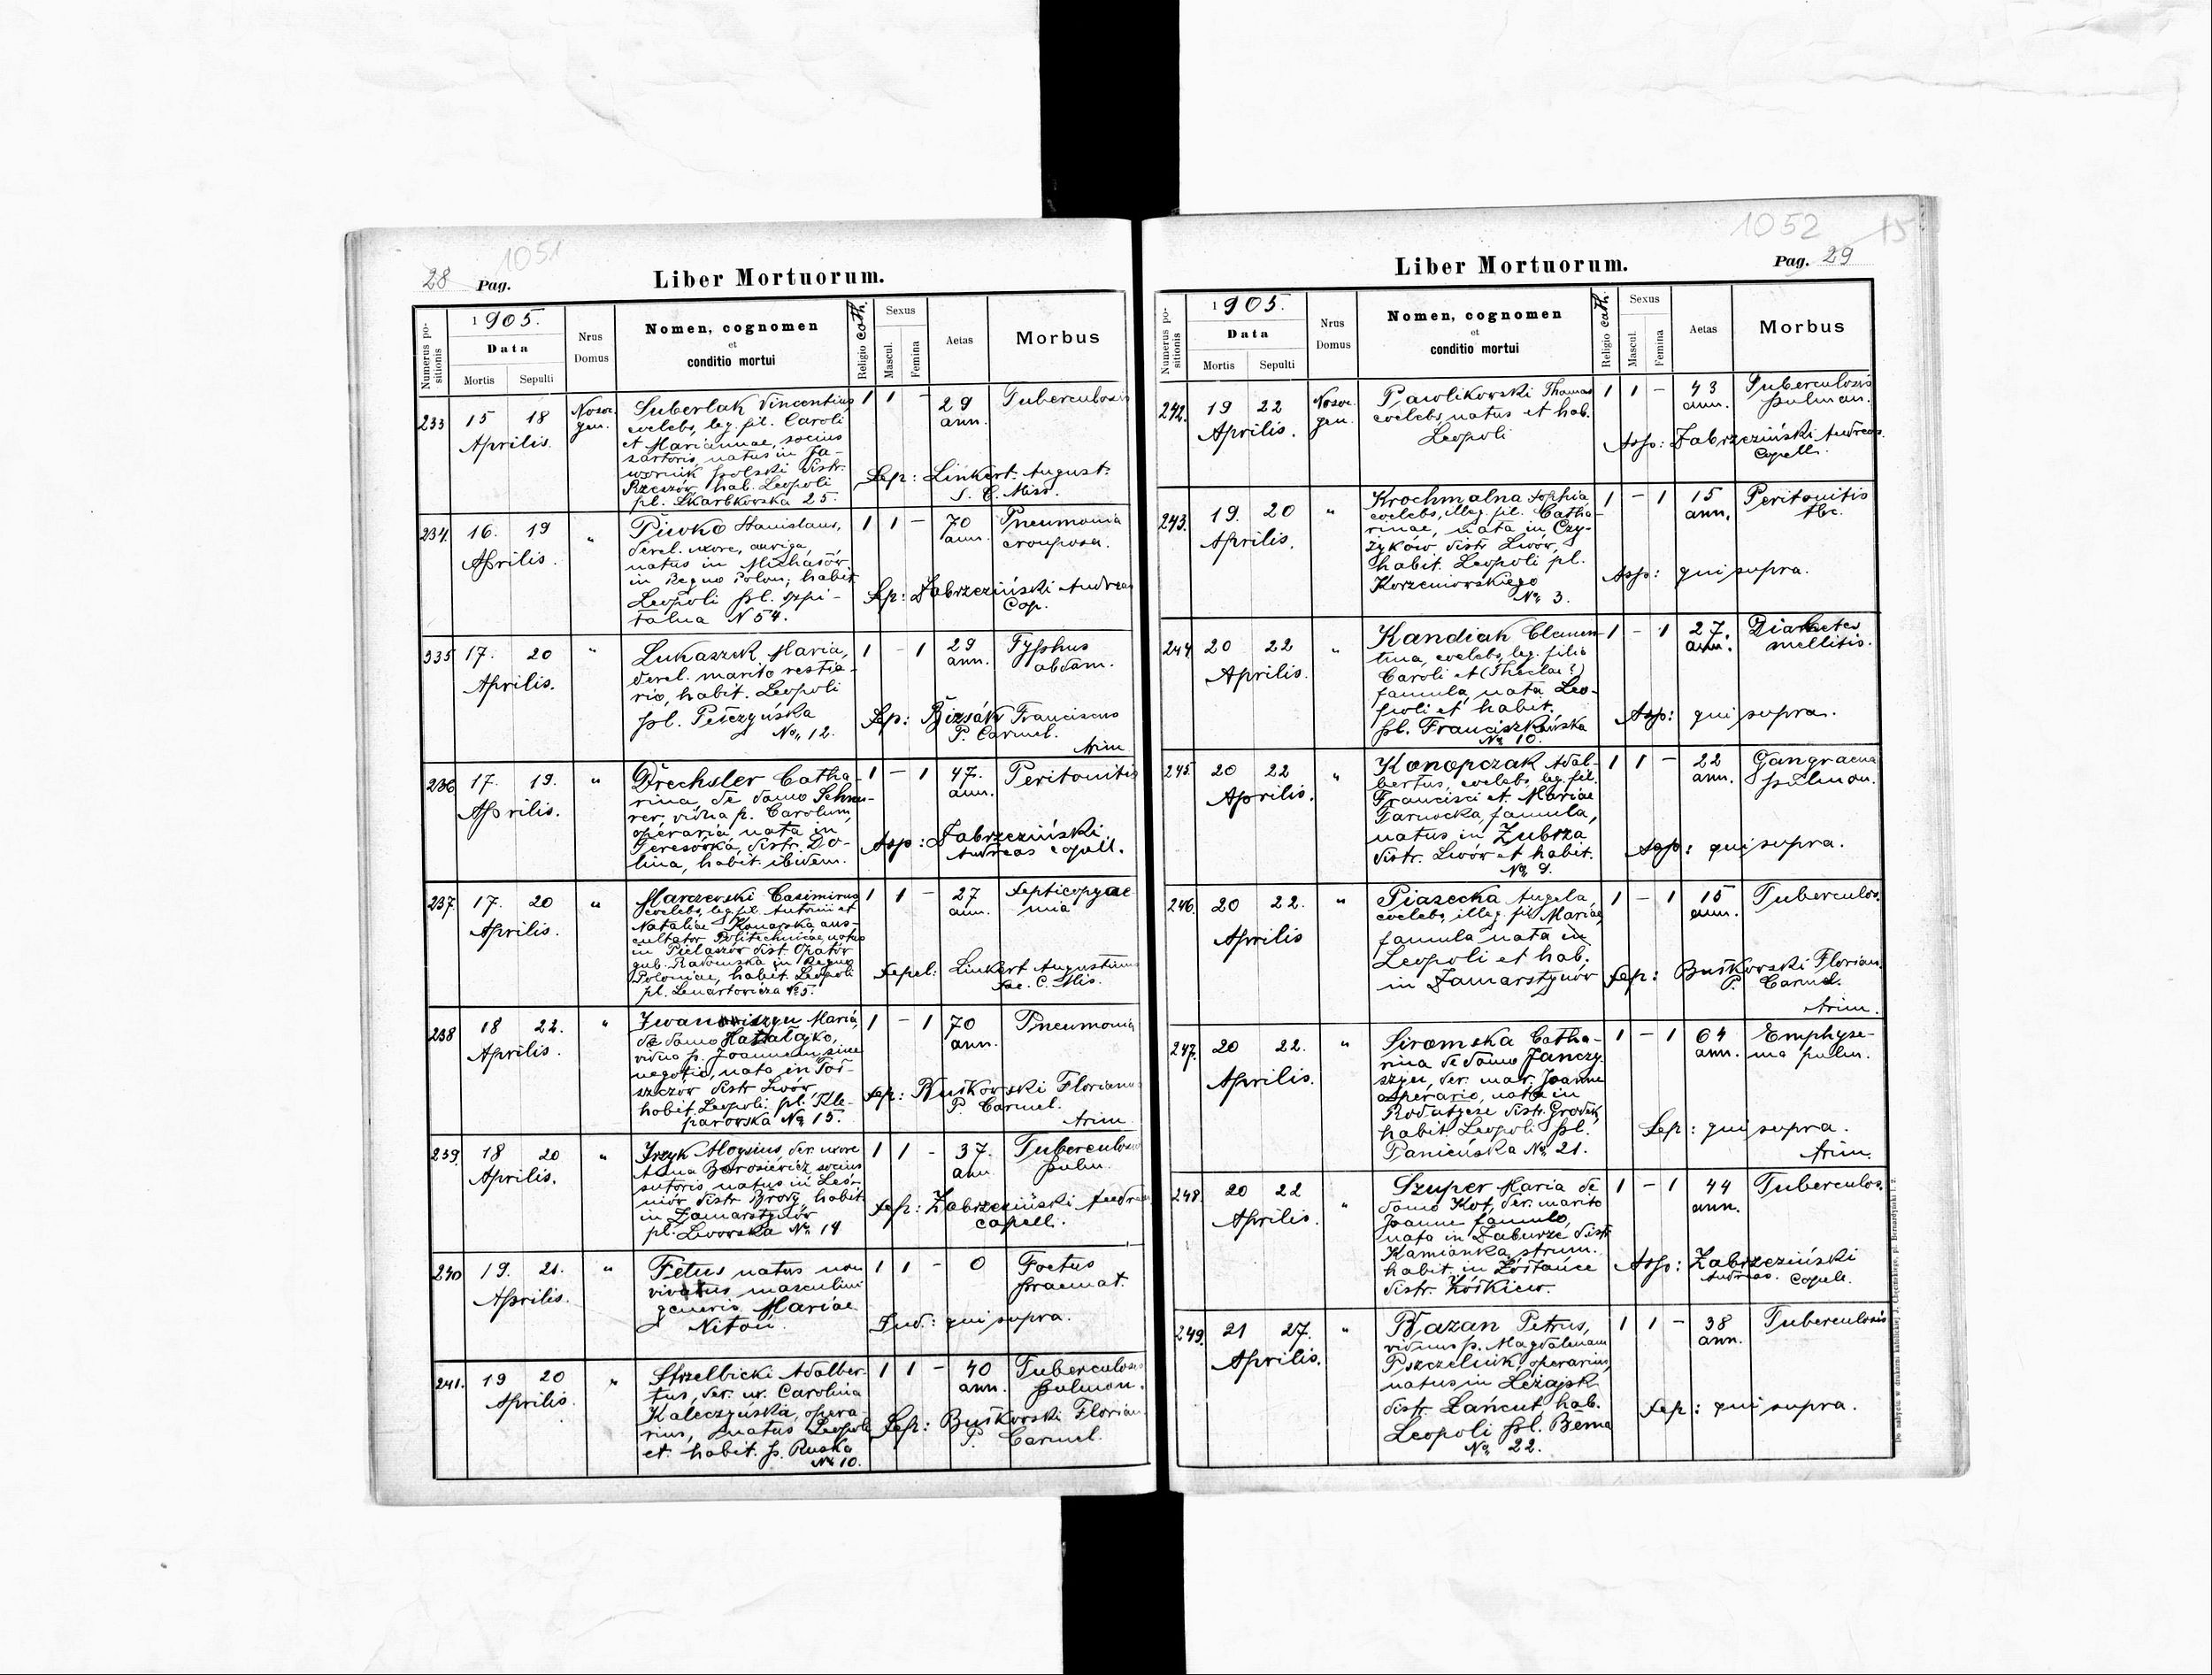 1051
28 Pag.
Liber Mortuorum.
Numerus positionis
1905.
Data
Mortis
Sepulti
Nrus Domus
Nomen, cognomen
et
conditio mortui
Religio cath.
Sexus
Mascul.
Femina
Aetas
Morbus
233 15 18 Aprilis.
Nosoc. gen.
Suberlak Vincentius
coelebs, leg. fil. Caroli
et Mariannae, socius
sartoris, natus in Ja-
wornik polski distr.
Rzeszów, hab. Leopoli
pl. Skarbkowska 25.
1 1 -
29 ann.
Tuberculosis
Sep: Linkert August.
S. C. Miss.
234. 16. 19 Aprilis.
"
Piwko Stanislaus,
derel. uxore, auriga,
natus in Michałów
in Regno Polon; habit.
Leopoli pl. Szpi-
talna N 54.
1 1 -
70 ann.
Pneumonia
crouposa.
Sep: Zabrzeziński Andreas
Cap.
335 17. 20 Aprilis.
"
Lukaszuk Maria,
derel. marito restia-
rio, habit. Leopoli
pl. Pełczyńska
No. 12.
1 - 1
29 ann.
Typhus
abdom.
Sep: Bizsák Franciscus
P. Carmel.
trim
236 17. 19. Aprilis.
"
Drechsler Catha-
rina, de domo
vidua p. Carolum,
operaria, nata in
Teresówka, distr. Do-
lina, habit. ibidem.
1 - 1
47. ann.
Peritonitis
Asp: Zabrzeziński
Andreas capell.
237. 17. 20 Aprilis.
"
Marczewski Casimirus
coelebs, leg. fil. Antonii et
Nataliae Konarska, aus-
cultator Politechnicae, natus
in distr. Opatów
gub. Radomska in Regno
Poloniae, habit. Leopoli
pl. Lenartowicza No 5.
1 1 -
27 ann.
Septicopyae
mia
Sepel: Linkert Augustinus
Sac. C. Mis.
238 18 22. Aprilis.
"
Maria,
de domo
vidua p. Joannem, sine
negotio, nata in Toł-
szczów distr Lwów
habit. Leopoli. pl. Kle-
parowska No 15.
1 - 1
70 ann.
Pneumonia
Sep: Buśkowski Florianus
P. Carmel.
trim.
239. 18 20 Aprilis.
"
Irzyk Aloysius, der. uxore
Anna Borosiewicz, socius
sutoris, natus in Leś-
niów distr Brody, habit.
in Zamarstynów
pl. Lwowska No 14
1 1 -
37. ann.
Tuberculosis
pulm.
Sep: Zabrzeziński Andreas
capell.
240 19. 21. Aprilis.
"
Fetus natus non
vivatus masculini
generis Mariae
Nitoń.
1 1 -
0
Foetus
praemat.
Ind.: qui supra.
241. 19 20 Aprilis.
"
Strzelbicki Adalber-
tus, der. ux. Carolina
Kaleczyńska, opera-
rius, natus Leopoli
et habit. p. Ruska
No 10.
1 1 -
40 ann.
Tuberculosis
pulmon.
Sep: Buśkowski Florian.
P. Carmel.
1052 15
Liber Mortuorum.
Pag. 29
Numerus positionis
1905.
Data
Mortis
Sepulti
Nrus Domus
Nomen, cognomen
et
conditio mortui
Religio cath.
Sexus
Mascul.
Femina
Aetas
Morbus
242. 19 22 Aprilis.
Nosoc. gen.
Pawlikowski Thomas
coelebs, natus et hab.
Leopoli
1 1 -
43 ann.
Tuberculosis
pulmon.
Asp: Zabrzeziński Andreas.
Capell.
243. 19. 20 Aprilis.
"
Krochmalna Sophia
coelebs, illeg. fil. Catha-
rinae, nata in Czy-
żyków distr Lwów,
habit. Leopoli pl.
Korzeniowskiego
No. 3.
1 - 1
15 ann.
Peritonitis
tbc.
Asp: qui supra.
244 20 22 Aprilis.
"
Kandiak Clemen-
tina, coelebs, leg. filia
Caroli et (Theclae?)
famula, nata Leo-
poli et habit.
pl. Franciszkańska
No 10.
1 - 1
27. ann.
Diabetes
mellitis.
Asp: qui supra.
245. 20 22 Aprilis.
"
Konopczak Adal-
bertus, coelebs, leg. fil.
Francisci et Mariae
Tarnocka, famula,
natus in Zubrza
distr. Lwów et habit.
No 9.
1 1 -
22 ann.
Gangraena
pulmon.
Asp: qui supra.
246. 20 22. Aprilis
"
Piasecka Angela,
coelebs, illeg. fil. Mariae,
famula nata in
Leopoli et hab.
in Zamarstynów
1 - 1
15 ann.
Tuberculos.
Sep: Buśkowski Florian.
P. Carmel.
trim.
247. 20 22. Aprilis.
"
Siromska Catha-
rina de domo Janczy
szyn, der. mar. Joanne
operario, nata in
Rodatycze distr. Gródek,
habit. Leopoli pl.
Panieńska No 21.
1 - 1
64 ann.
Emphyse-
ma pulm.
Sep: qui supra.
trim.
248. 20 22 Aprilis.
"
Szuper Maria de
domo Kot, der. marito
Joanne famulo,
nata in Zaburze distr
Kamianka strum.
habit. in Żółtańce
distr. Żółkiew.
1 - 1
44 ann.
Tuberculos.
Asp: Zabrzeziński
Andreas. Capell.
249. 21 27. Aprilis.
"
Bazan Petrus,
viduus p. Magdalenam
Pszczelnik, operarius,
natus in Leżajsk
distr. Łańcut, hab.
Leopoli pl. Bema
No 22.
1 1 -
38 ann.
Tuberculosis
Sep: qui supra.